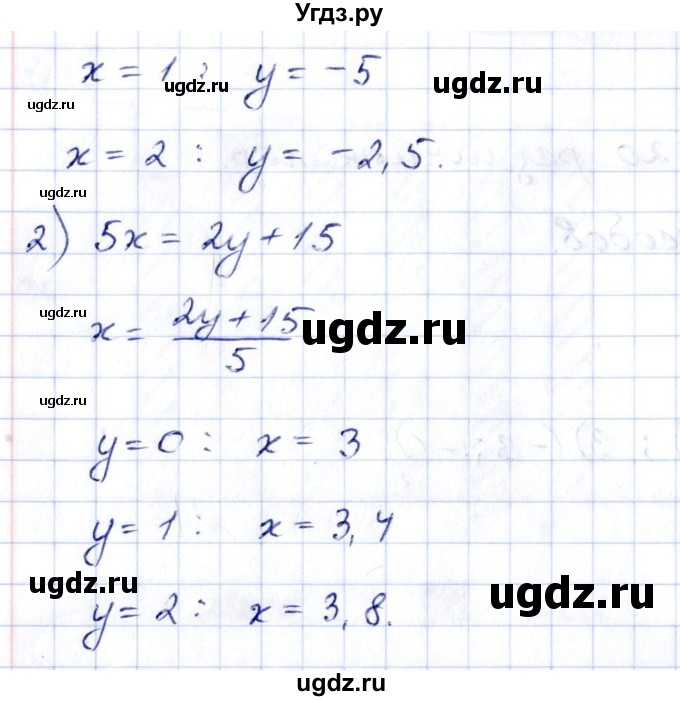 Угдз.ру
x = 1 : y = -5
ugdz.ru ugdz.ru
ugdz.ru
x = 2 : y = -2,5.
ugdz.ru
2) 5x = 2y + 15
ugdz.ru
x = (2y + 15)/5
ugdz.ru
ugdz.ru
y = 0 : x = 3
y = 1 : x = 3,4
ugdz.ru
ugdz.ru
y = 2 : x = 3,8.
ugdz.ru